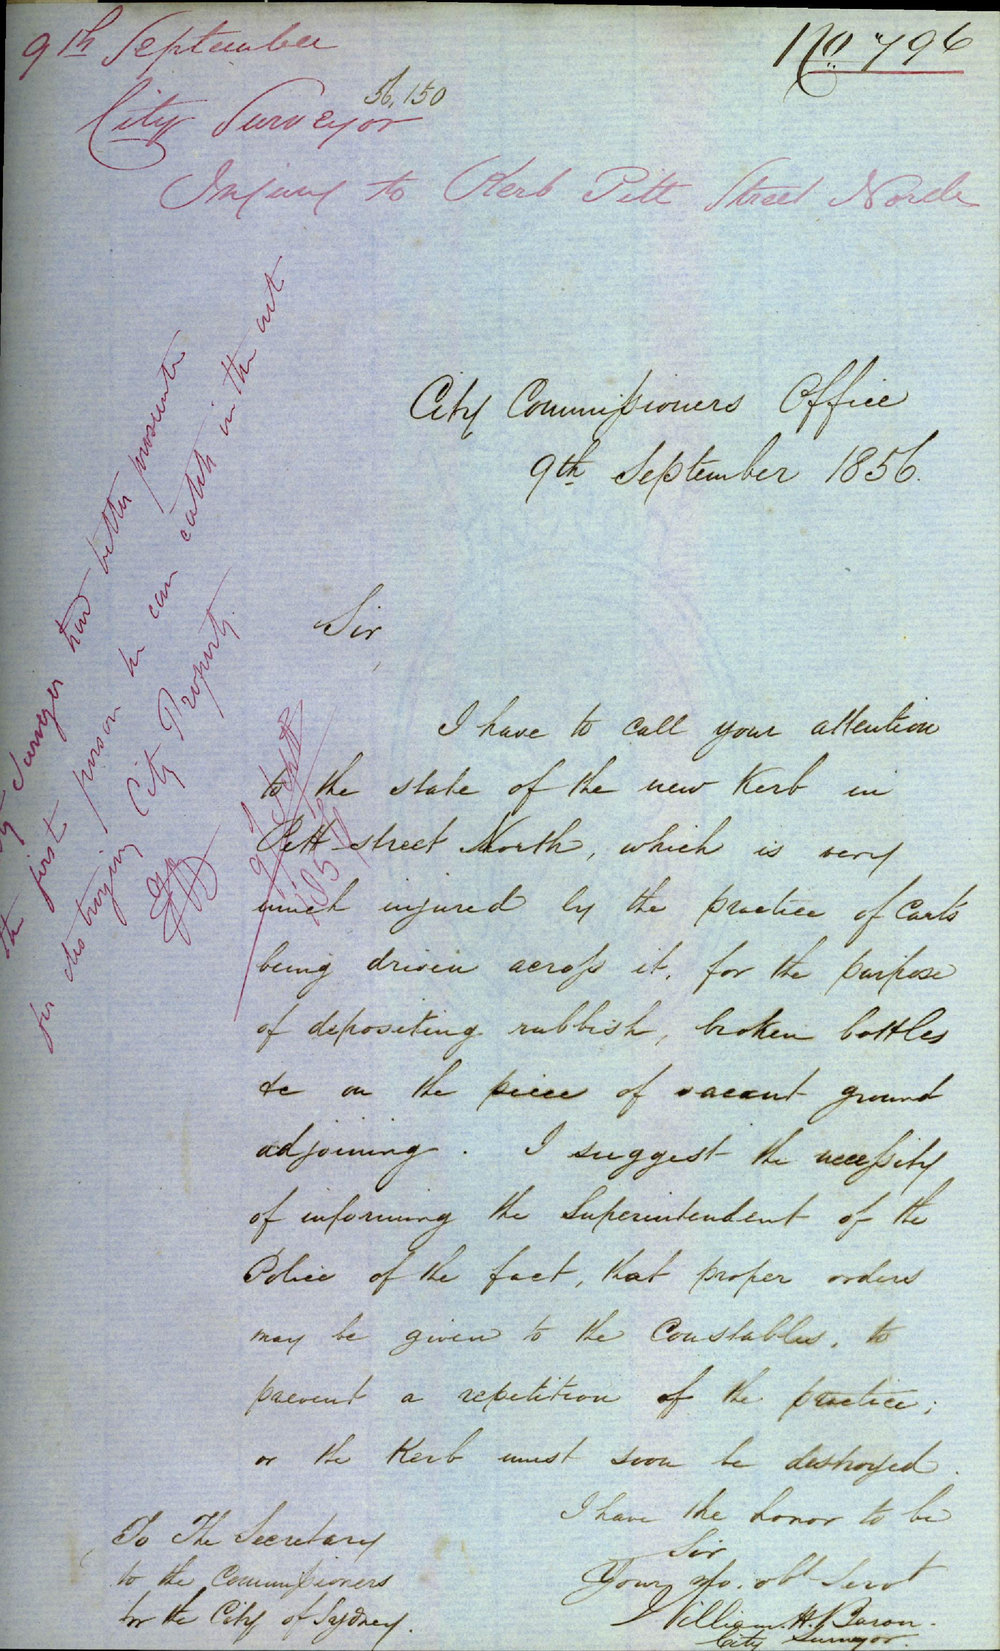 9th September
No. 796
56,150
City Surveyor
Injury to Kerb Pitt Street North
City Commissioners Office
9th September 1856.
Sir,
I have to call your attention
to the state of the new Kerb in
Pitt street North, which is very
much injured by the practice of Carts
being driven across it, for the purpose
of depositing rubbish, broken bottles
&c on the piece of vacant ground
adjoining. I suggest the necessity
of informing the Superintendent of the
Police of the fact, that proper orders
may be given to the Constables, to
prevent a repetition of the practice;
or the Kerb must soon be destroyed.
I have the honor to be
Sir
Your mo. obt Servt
William H. Baron.
City Surveyor
To The Secretary
to the Commissioners
for the City of Sydney.
Surveyor had better prosecute
the first person he can catch in the act
for destroying City Property.
9 Sept
1856